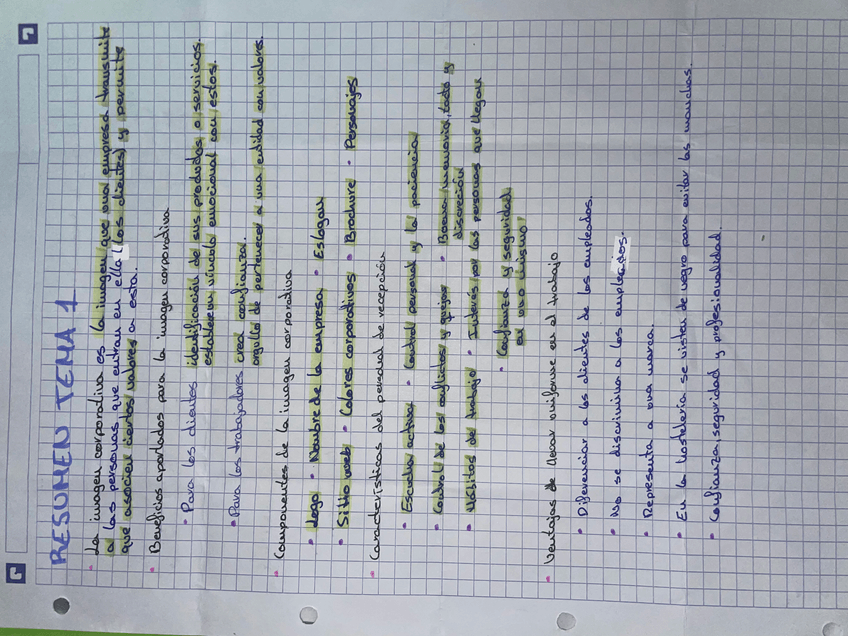 RESUMEN TEMA 1
• La imagen corporativa es la imagen que una empresa transmite
a las personas que entran en ella (los clientes) y permite
que asocien ciertos valores a esta.
• Beneficios aportados para la imagen corporativa
• Para los clientes identificación de sus productos o servicios.
establecen vínculo emocional con estos.
• Para los trabajadores crea confianza.
orgullo de pertenecer a una entidad con valores.
• Componentes de la imagen corporativa
• Logo • Nombre de la empresa • Eslogan
• Sitio web • Colores corporativos • Brochure • Personajes
• Características del personal de recepción
• Escucha activa • Control personal y la paciencia
• Control de los conflictos y quejas • Buena memoria, tacto y
discreción
• Hábitos de trabajo • Interés por las personas que llegan
• Confianza y seguridad
en uno mismo
• Ventajas de llevar uniforme en el trabajo
• Diferenciar a los clientes de los empleados.
• No se discrimina a los empleados.
• Representa a una marca.
• En la hostelería se visten de negro para evitar las manchas.
• Confianza, seguridad y profesionalidad.